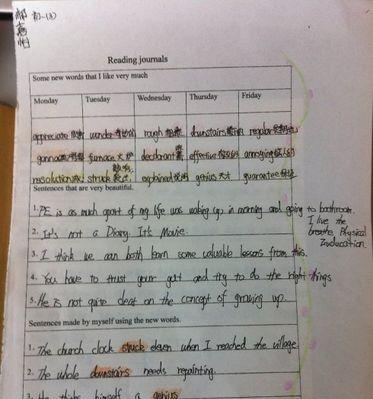 初一(3)
Reading journals
Some new words that I like very much
Monday Tuesday Wednesday Thursday Friday
appreciate wonder rough downstairs regular
gonna furnace deodorant effective annoying
resolution struck explained genius 天才 guarantee
Sentences that are very beautiful.
1. PE is as much apart of my life was waking up in morning and going to bathroom.
I live the
breathe Physical
2. It's not a Diary. It's Movie.
3. I think we can both learn some valuable lessons from this.
4. You have to trust your gut and try to do the right things
5. He is not quite clear on the concept of growing up.
Sentences made by myself using the new words.
1. The church clock struck eleven when I reached the village
2. The whole downstairs needs repainting.
3. He thinks himself a genius